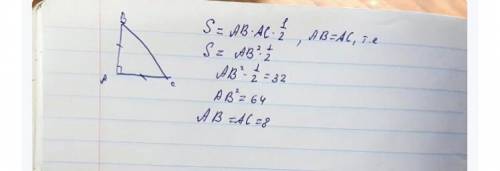 B
A
C
S = AB · AC · 1/2 , AB = AC, т.е
S = AB² · 1/2
AB² · 1/2 = 32
AB² = 64
AB = AC = 8